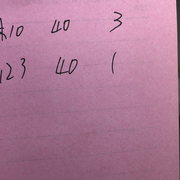 A10 40 3
123 40 1